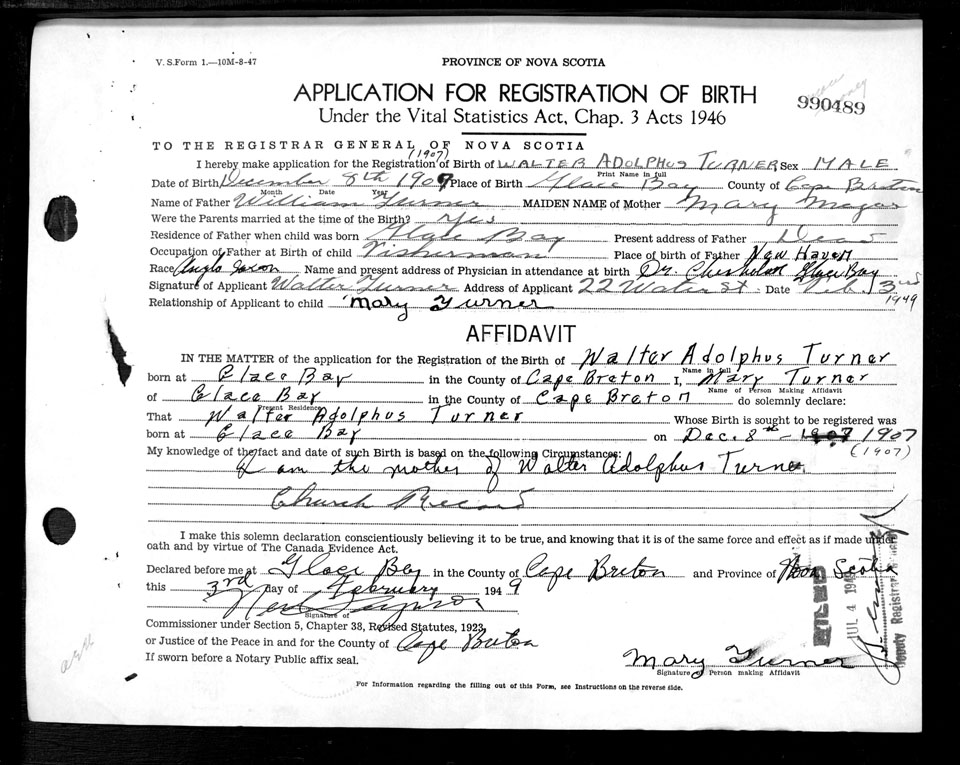 V. S. Form 1.—10M-8-47
PROVINCE OF NOVA SCOTIA
APPLICATION FOR REGISTRATION OF BIRTH
990489
Under the Vital Statistics Act, Chap. 3 Acts 1946
TO THE REGISTRAR GENERAL OF NOVA SCOTIA
(1907)
I hereby make application for the Registration of Birth of WALTER ADOLPHUS TURNER Sex MALE
Print Name in full
Date of Birth December 8th 1907 Place of Birth Glace Bay County of Cape Breton
Month Date Year
Name of Father William Turner MAIDEN NAME of Mother Mary
Were the Parents married at the time of the Birth? Yes
Residence of Father when child was born Glace Bay Present address of Father Dead
Occupation of Father at Birth of child Fisherman Place of birth of Father New Haven
Race Anglo Saxon Name and present address of Physician in attendance at birth Dr. Glace Bay
Signature of Applicant Walter Turner Address of Applicant 22 Water St. Date Feb. 3rd
1949
Relationship of Applicant to child Mary Turner
AFFIDAVIT
IN THE MATTER of the application for the Registration of the Birth of Walter Adolphus Turner
Name in full
born at Glace Bay in the County of Cape Breton I, Mary Turner
Name of Person Making Affidavit
of Glace Bay in the County of Cape Breton do solemnly declare:
Present Residence
That Walter Adolphus Turner Whose Birth is sought to be registered was
born at Glace Bay on Dec. 8th - 1907 1907
(1907)
My knowledge of the fact and date of such Birth is based on the following Circumstances:
I am the mother of Walter Adolphus Turner.
Church Record
I make this solemn declaration conscientiously believing it to be true, and knowing that it is of the same force and effect as if made under
oath and by virtue of The Canada Evidence Act.
Declared before me at Glace Bay in the County of Cape Breton and Province of Nova Scotia
this 3rd day of February 1949
Signature of
Commissioner under Section 5, Chapter 38, Revised Statutes, 1923,
or Justice of the Peace in and for the County of Cape Breton
If sworn before a Notary Public affix seal.
Mary Turner
Signature of Person making Affidavit
FILED
JUL 4 1949
Deputy Registrar
For Information regarding the filling out of this Form, see Instructions on the reverse side.